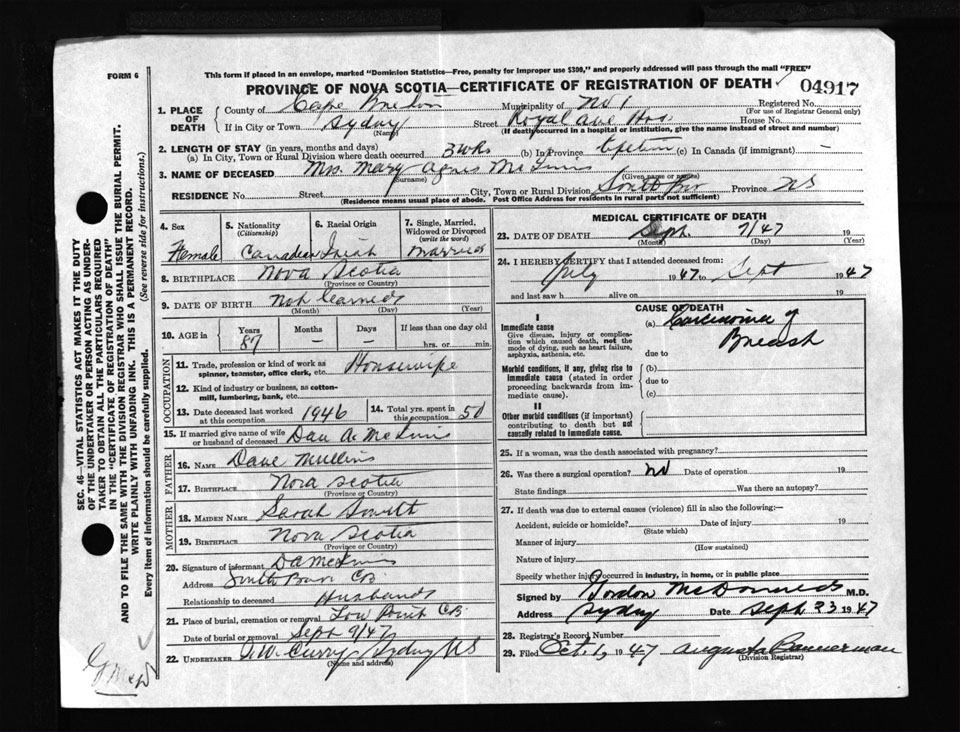 FORM 6
This form if placed in an envelope, marked "Dominion Statistics—Free, penalty for improper use $300," and properly addressed will pass through the mail "FREE"
PROVINCE OF NOVA SCOTIA—CERTIFICATE OF REGISTRATION OF DEATH
04917
1. PLACE OF DEATH
County of Cape Breton Municipality of No 1 Registered No.
(For use of Registrar General only)
If in City or Town Sydney Street Royal Ave Hos House No.
(Name) (If death occurred in a hospital or institution, give the name instead of street and number)
2. LENGTH OF STAY (in years, months and days)
(a) In City, Town or Rural Division where death occurred 3 wks (b) In Province Lifetime (c) In Canada (if immigrant) —
3. NAME OF DECEASED Mrs. Mary Agnes McInnis
(Surname) (Given name or names)
RESIDENCE No. Street City, Town or Rural Division South Bar Province NS
(Residence means usual place of abode. Post Office Address for residents in rural parts not sufficient)
4. Sex
Female
5. Nationality
(Citizenship)
Canadian
6. Racial Origin
Irish
7. Single, Married, Widowed or Divorced
(write the word)
Married
8. BIRTHPLACE Nova Scotia
(Province or Country)
9. DATE OF BIRTH Not learned
(Month) (Day) (Year)
10. AGE in
Years Months Days If less than one day old
87 — — hrs. or min.
OCCUPATION
11. Trade, profession or kind of work as spinner, teamster, office clerk, etc. Housewife
12. Kind of industry or business, as cotton-mill, lumbering, bank, etc.
13. Date deceased last worked at this occupation 1946
14. Total yrs. spent in this occupation 50
15. If married give name of wife or husband of deceased Dan A. McInnis
FATHER
16. NAME Dave Mullins
17. BIRTHPLACE Nova Scotia
(Province or Country)
MOTHER
18. MAIDEN NAME Sarah
19. BIRTHPLACE Nova Scotia
(Province or Country)
20. Signature of informant DA McInnis
Address South Bar CB
Relationship to deceased Husband
21. Place of burial, cremation or removal Low Point CB
Date of burial or removal Sept 9/47
22. UNDERTAKER W. Curry Sydney NS
(Name and address)
MEDICAL CERTIFICATE OF DEATH
23. DATE OF DEATH Sept. 7/47 19
(Month) (Day) (Year)
24. I HEREBY CERTIFY that I attended deceased from:
July 1947 to Sept 1947
and last saw h alive on 19
CAUSE OF DEATH
I
Immediate cause
Give disease, injury or complication which caused death, not the mode of dying, such as heart failure, asphyxia, asthenia, etc.
(a) Carcinoma of
Breast
due to
Morbid conditions, if any, giving rise to immediate cause (stated in order proceeding backwards from immediate cause).
(b)
due to
(c)
II
Other morbid conditions (if important) contributing to death but not causally related to immediate cause.
25. If a woman, was the death associated with pregnancy?
26. Was there a surgical operation? no Date of operation 19
State findings Was there an autopsy?
27. If death was due to external causes (violence) fill in also the following:—
Accident, suicide or homicide? Date of injury 19
(State which)
Manner of injury
(How sustained)
Nature of injury
Specify whether injury occurred in industry, in home, or in public place
Signed by Gordon McDonald M.D.
Address Sydney Date Sept 23 1947
28. Registrar's Record Number
29. Filed Oct. 1, 1947 Augusta Bannerman
(Division Registrar)
SEC. 46—VITAL STATISTICS ACT MAKES IT THE DUTY
OF THE UNDERTAKER OR PERSON ACTING AS UNDER-
TAKER TO OBTAIN ALL THE PARTICULARS REQUIRED
IN THE "CERTIFICATE OF REGISTRATION OF DEATH"
AND TO FILE THE SAME WITH THE DIVISION REGISTRAR WHO SHALL ISSUE THE BURIAL PERMIT.
WRITE PLAINLY WITH UNFADING INK. THIS IS A PERMANENT RECORD.
Every item of information should be carefully supplied. (See reverse side for instructions.)